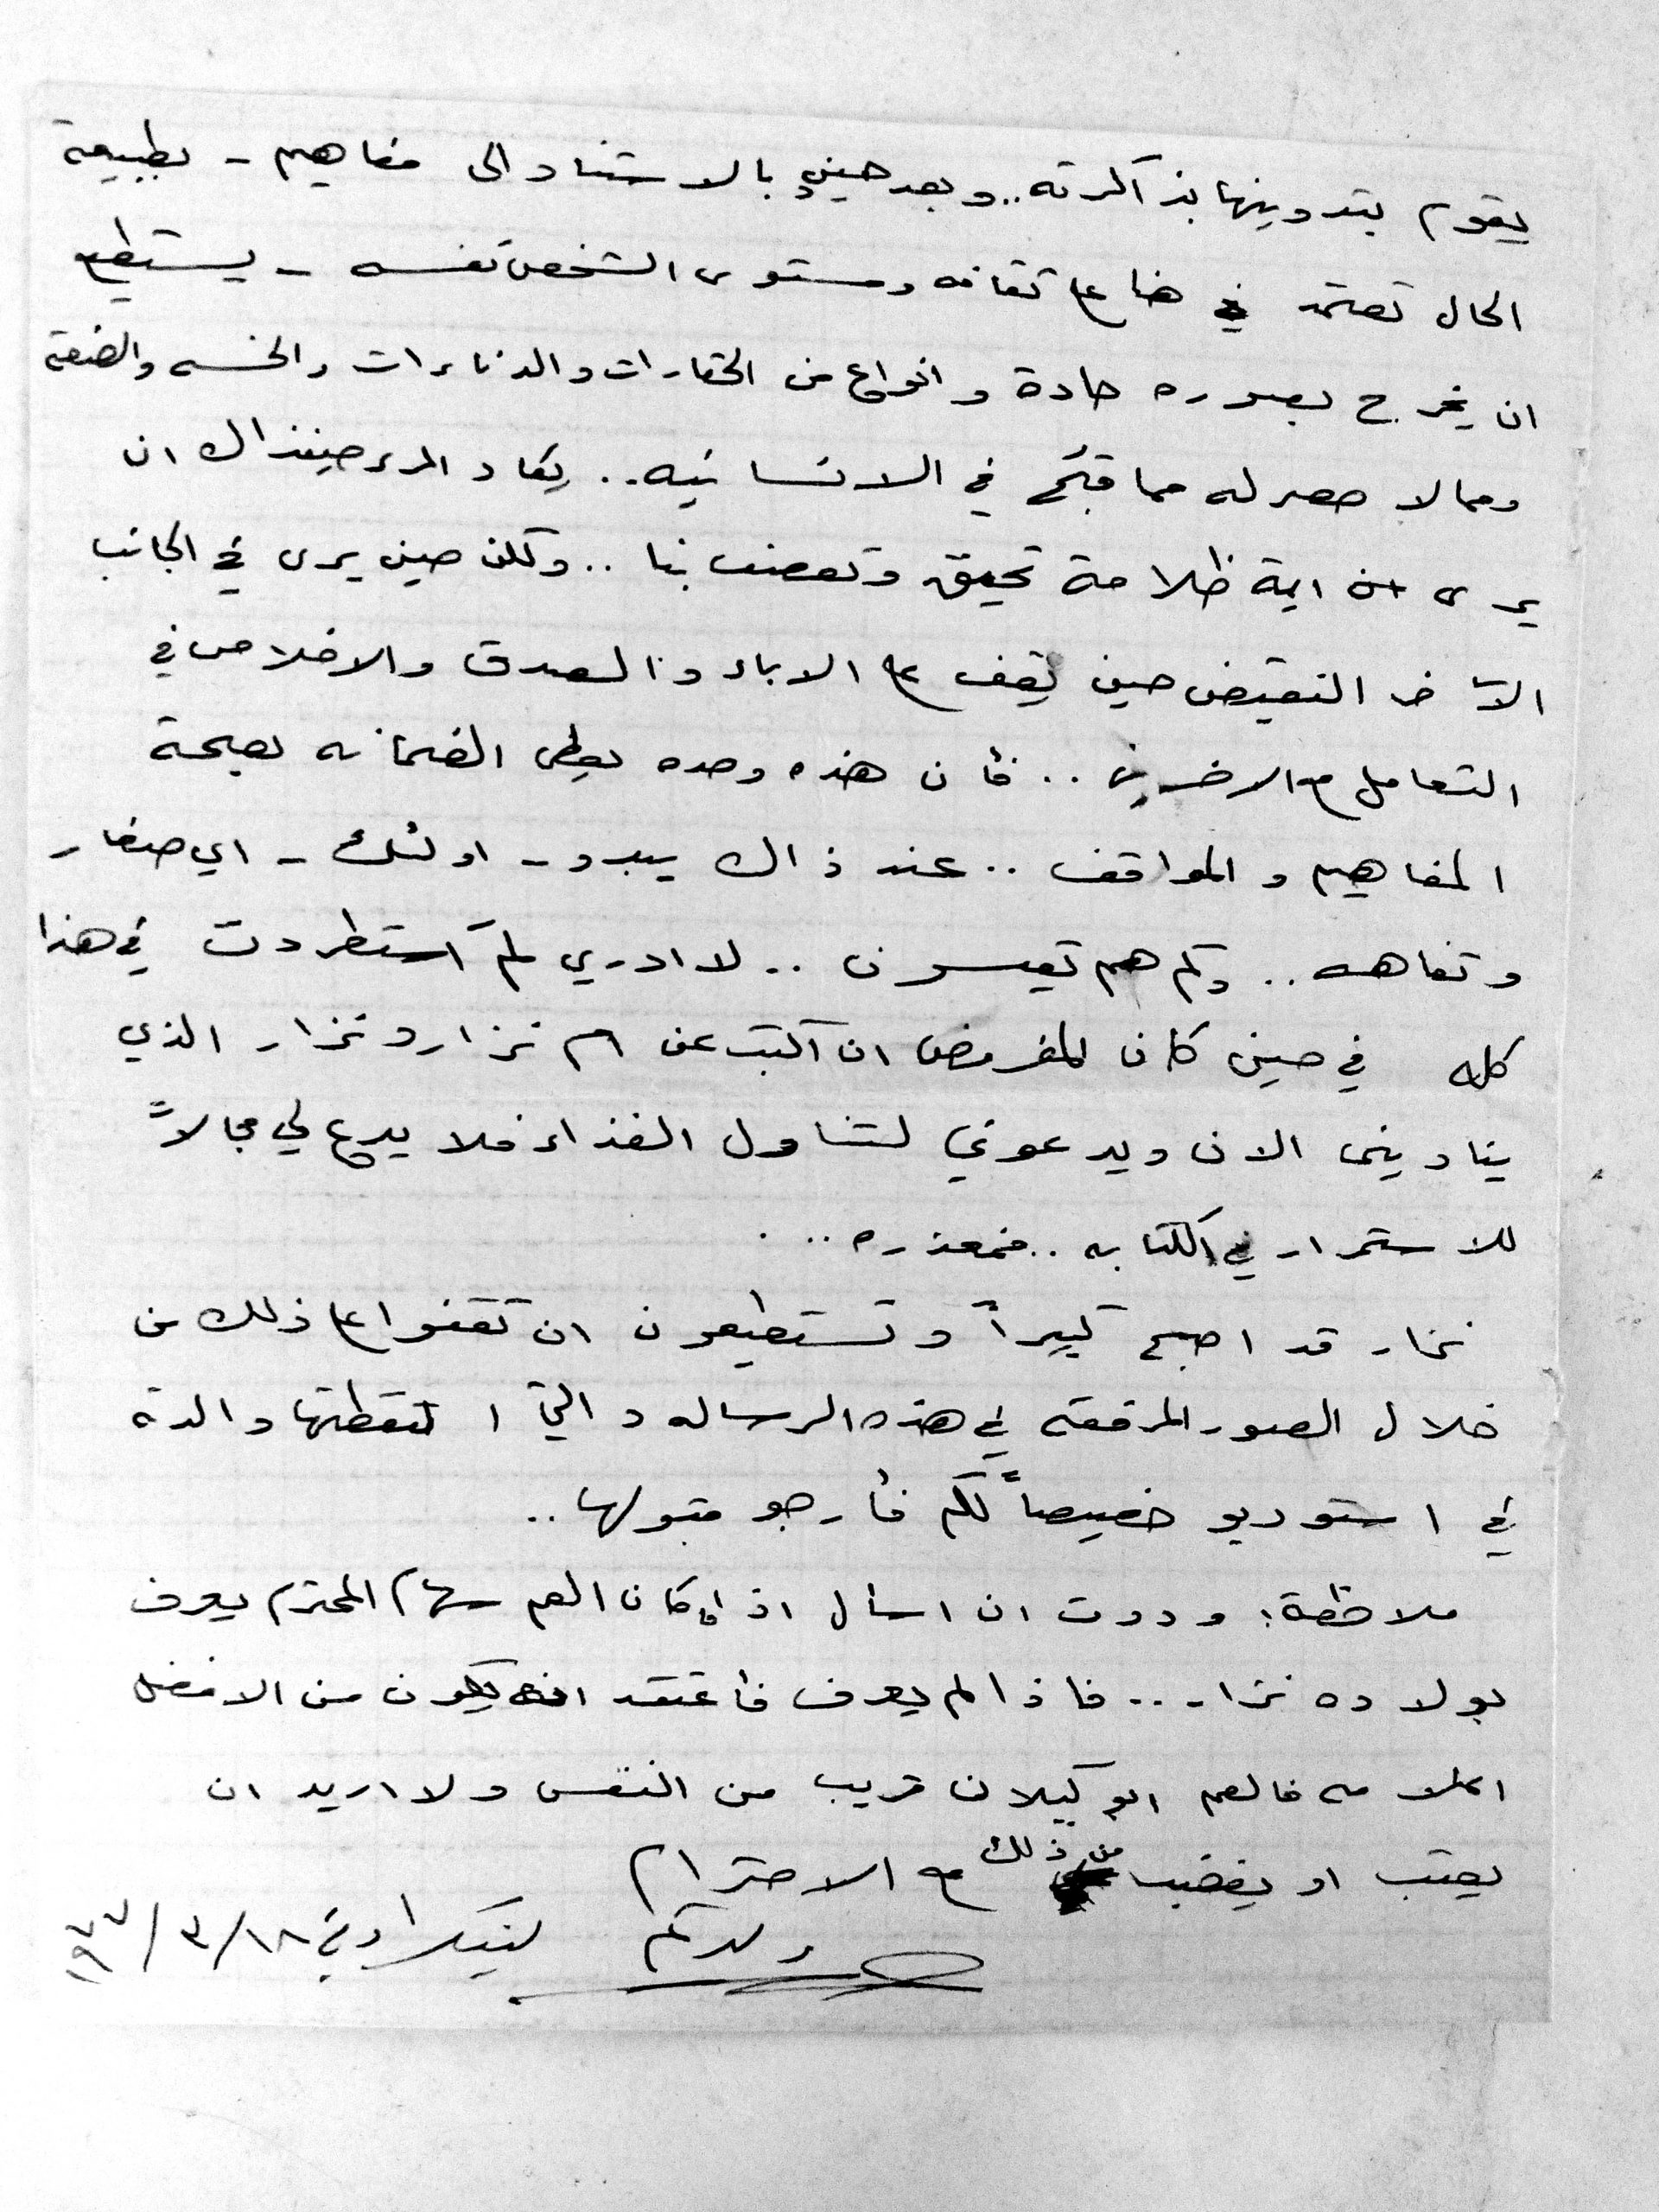 يقوم بتدوينها بذاكرته .. وبعد حينٍ بالاستناد الى مفاهيم - بطبيعة
الحال تعتمد هنا على ثقافه ومستوى الشخص نفسه - يستطيع
ان يخرج بصوره حادة وانواع من الحقارات والدناءات والخسه والضعة
ومما لا حصر له مما قبُح في الانسانيه .. يكاد المرء حينذاك ان
يرى اية ظلامة تحيق وتعصف بنا .. ولكن حين يرى في الجانب
الآخر النقيض حين يقف على الاباء والصدق والاخلاص في
التعامل مع الاخرين .. فأن هذه وحده يعطي الضمانه بصحة
المفاهيم والمواقف .. عند ذاك يبدو - اولئك - اي صغار
وتفاهه .. وكم هم تعيسون .. لا ادري لمَ استطردت في هذا
كله في حين كان المفروض ان اكتب عن ام نزار ونزار الذي
يناديني الان ويدعوني لتناول الغذاء فلا يدع لي مجالاً
للاستمرار في الكتابه .. فمعذره ...
نزار قد اصبح كبيراً وتستطيعون ان تقفوا على ذلك من
خلال الصور المرفقه في هذه الرساله والتي التقطتها والدته
في استوديو خصيصاً لكم فأرجو قبولها ..
ملاحظة: وددت ان اسأل اذا كان العم سهام المحترم يعرف
بولاده نزار .. فاذا لم يعرف فأعتقد انه يكون من الافضل
اعلامه فالعم ابو كيلان قريب من النفس ولا اريد ان
يعتب او يغضب من ذلك مع الاحترام
ولدكم لينينغراد في ١٨/٣/١٩٧٧